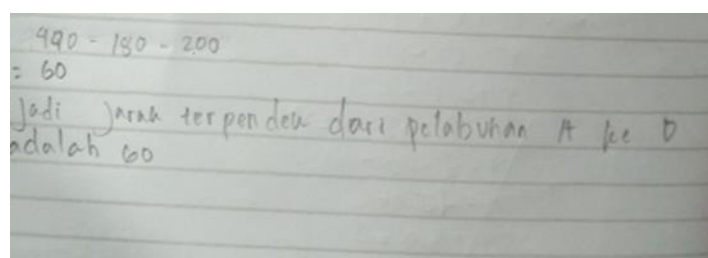 440 - 180 - 200
= 60
Jadi Jarak terpendek dari pelabuhan A ke D
adalah 60